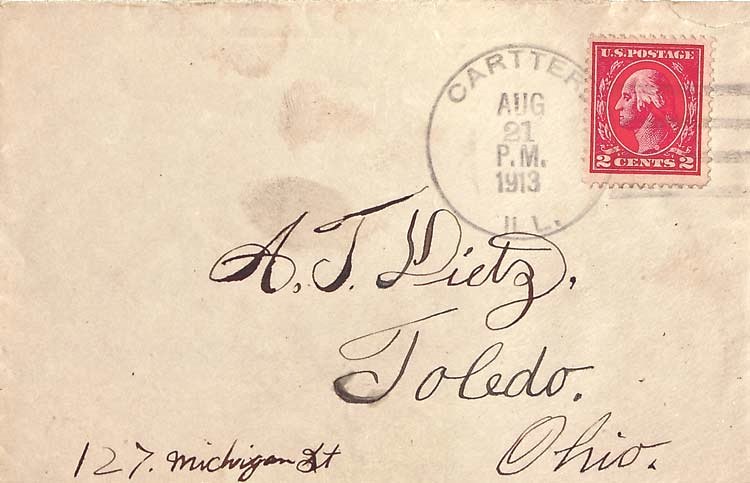 CARTTER
AUG
21
P.M.
1913
ILL.
U.S. POSTAGE
2 CENTS 2
A. T. Dietz,
Toledo.
Ohio.
127. Michigan St